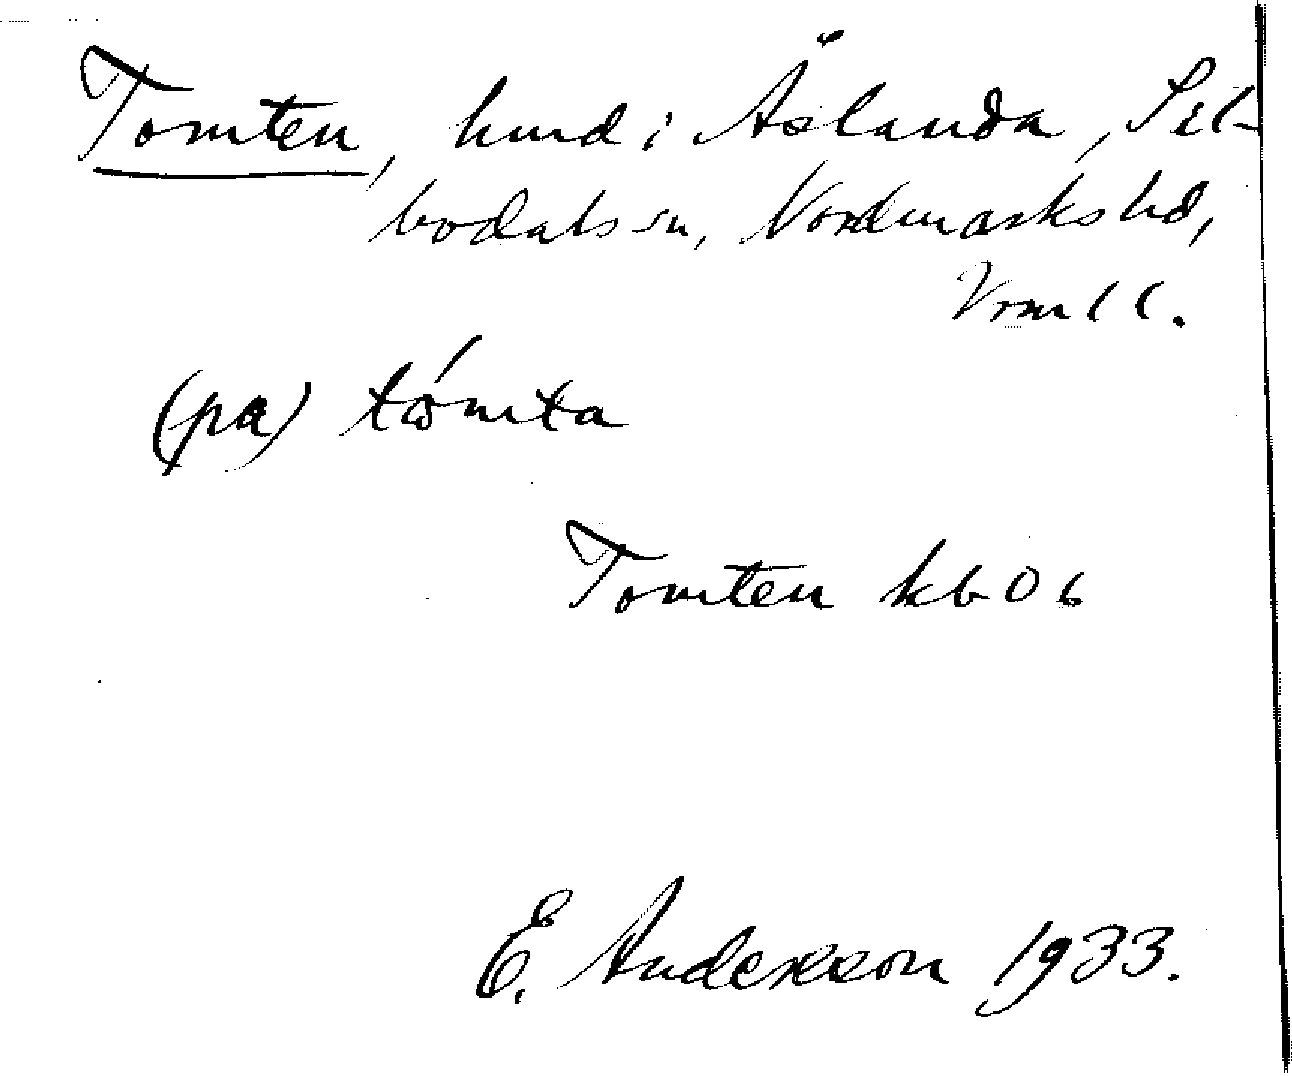 Tomten, hmd i Äslanda, Sil-
bodals sn, Nordmarks hd,
Vrml.
(pa) tómta
Tomten kb 06
E. Andersson 1933.